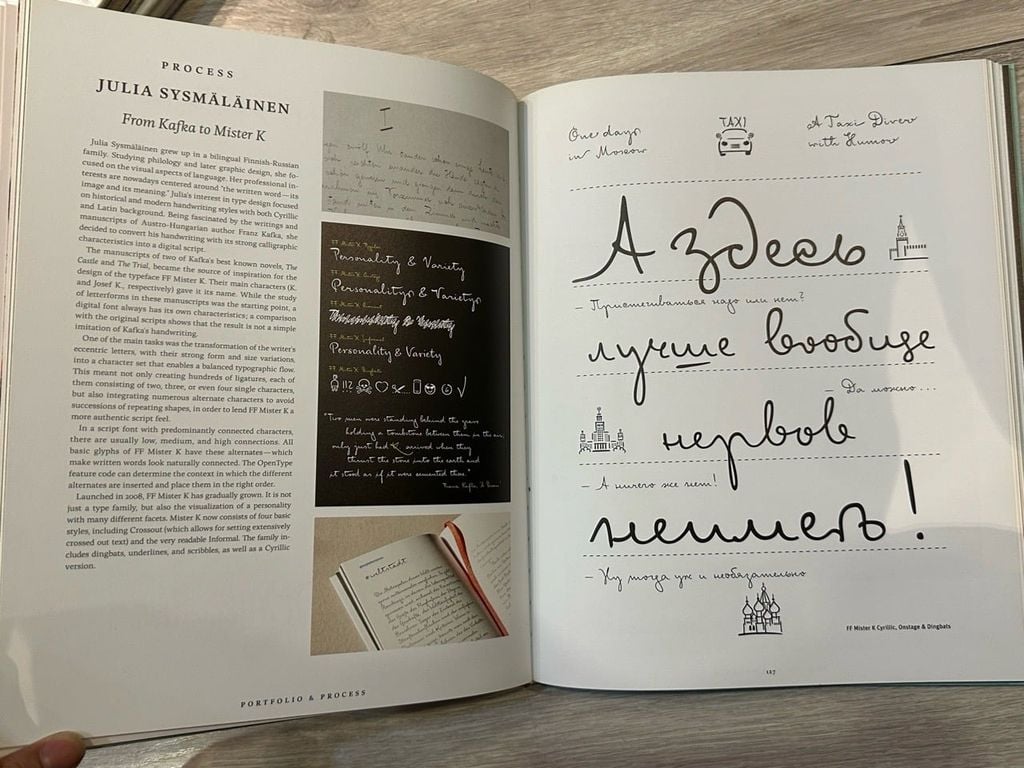 PROCESS
JULIA SYSMÄLÄINEN
From Kafka to Mister K
Julia Sysmäläinen grew up in a bilingual Finnish-Russian
family. Studying philology and later graphic design, she fo-
cused on the visual aspects of language. Her professional in-
terests are nowadays centered around "the written word—its
image and its meaning." Julia's interest in type design focused
on historical and modern handwriting styles with both Cyrillic
and Latin background. Being fascinated by the writings and
manuscripts of Austro-Hungarian author Franz Kafka, she
decided to convert his handwriting with its strong calligraphic
characteristics into a digital script.
The manuscripts of two of Kafka's best known novels, The
Castle and The Trial, became the source of inspiration for the
design of the typeface FF Mister K. Their main characters (K.
and Josef K., respectively) gave it its name. While the study
of letterforms in these manuscripts was the starting point, a
digital font always has its own characteristics; a comparison
with the original scripts shows that the result is not a simple
imitation of Kafka's handwriting.
One of the main tasks was the transformation of the writer's
eccentric letters, with their strong form and size variations,
into a character set that enables a balanced typographic flow.
This meant not only creating hundreds of ligatures, each of
them consisting of two, three, or even four single characters,
but also integrating numerous alternate characters to avoid
successions of repeating shapes, in order to lend FF Mister K a
more authentic script feel.
In a script with predominantly connected characters,
there are usually low, medium, and high connections. All
basic glyphs of FF Mister K have these alternates—which
make written words look naturally connected. The OpenType
feature code can determine the context in which the different
alternates are inserted and place them in the right order.
Launched in 2008, FF Mister K has gradually grown. It is not
just a type family, but also the visualization of a personality
with many different facets. Mister K now consists of four basic
styles, including Crossout (which allows for setting extensively
crossed out text) and the very readable Informal. The family in-
cludes dingbats, underlines, and scribbles, as well as a Cyrillic
version.
FF Mister K Regular
Personality & Variety
FF Mister K Onstage
Personality & Variety
FF Mister K Crossout
Personality & Variety
FF Mister K Informal
Personality & Variety
FF Mister K Dingbats
"Two men were standing behind the grave
holding a tombstone between them in the air,
only just had K. arrived when they
thrust the stone into the earth and
it stood as if it were cemented there."
Franz Kafka, A Dream
Weltstadt
PORTFOLIO & PROCESS
One day
in Moscow
TAXI
A Taxi Diver
with Humor
А здесь
– Пристегиваться надо или нет?
лучше вообще
– Да можно ...
нервов
– А ничего же нет!
неиметь!
– Ну тогда уж и необязательно
FF Mister K Cyrillic, Onstage & Dingbats
127